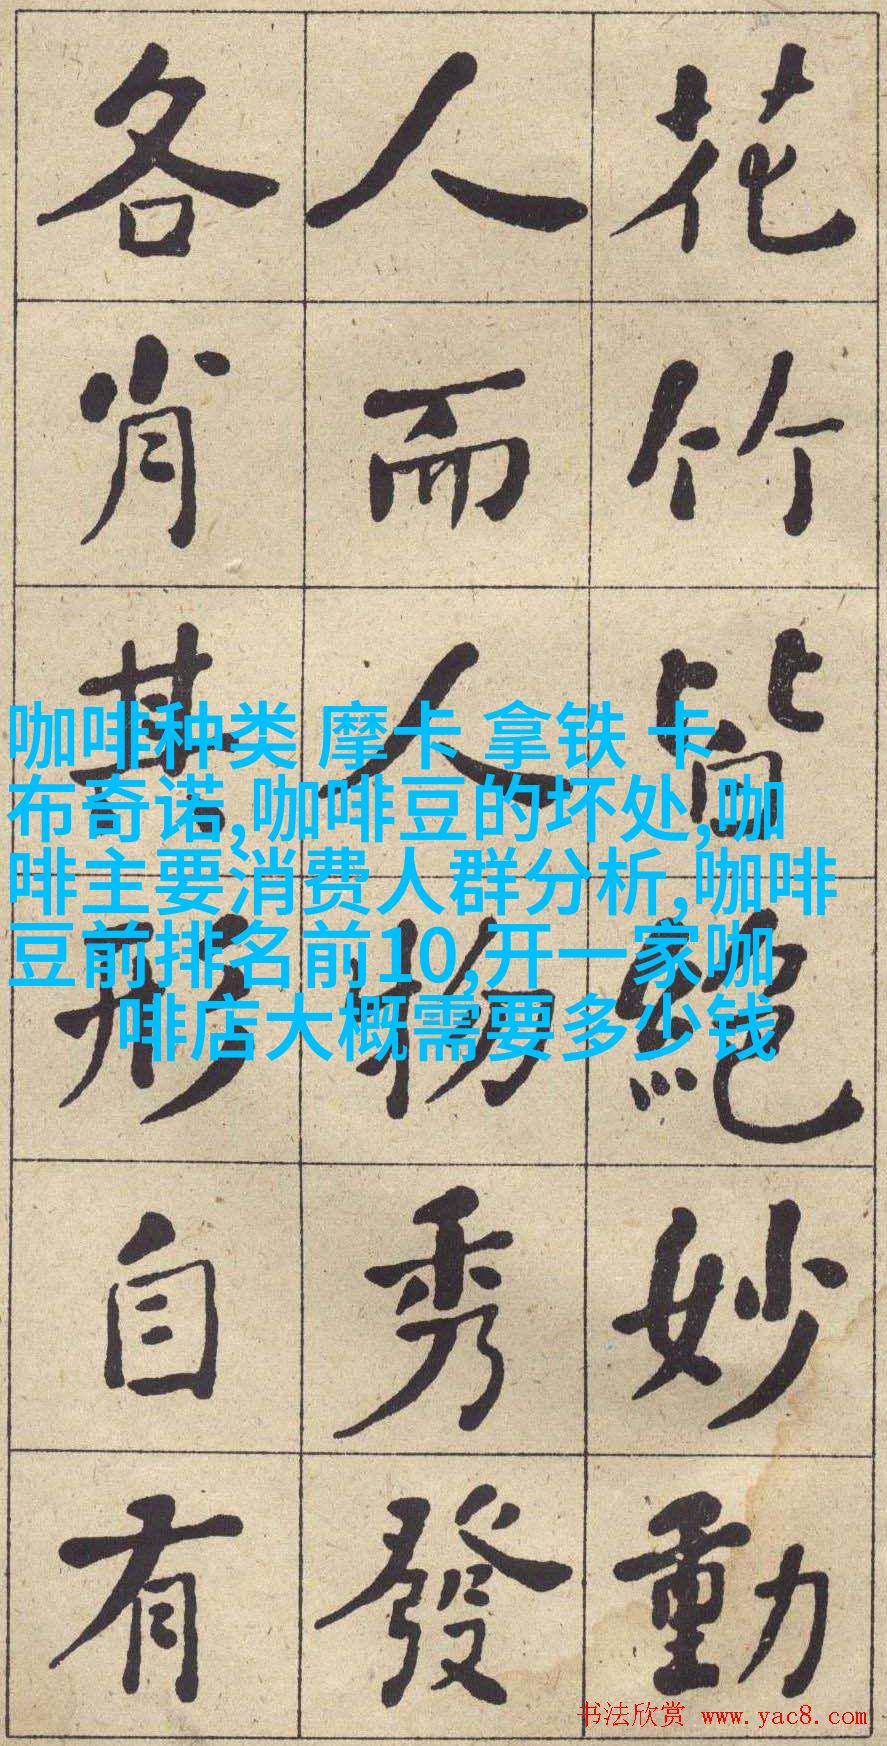 花竹皆絕妙動
人而人物秀發
各肖其形自有
咖啡种类 摩卡 拿铁 卡
布奇诺,咖啡豆的坏处,咖
啡主要消费人群分析,咖啡
豆前排名前10,开一家咖
啡店大概需要多少钱
书法欣赏 www.yac8.com